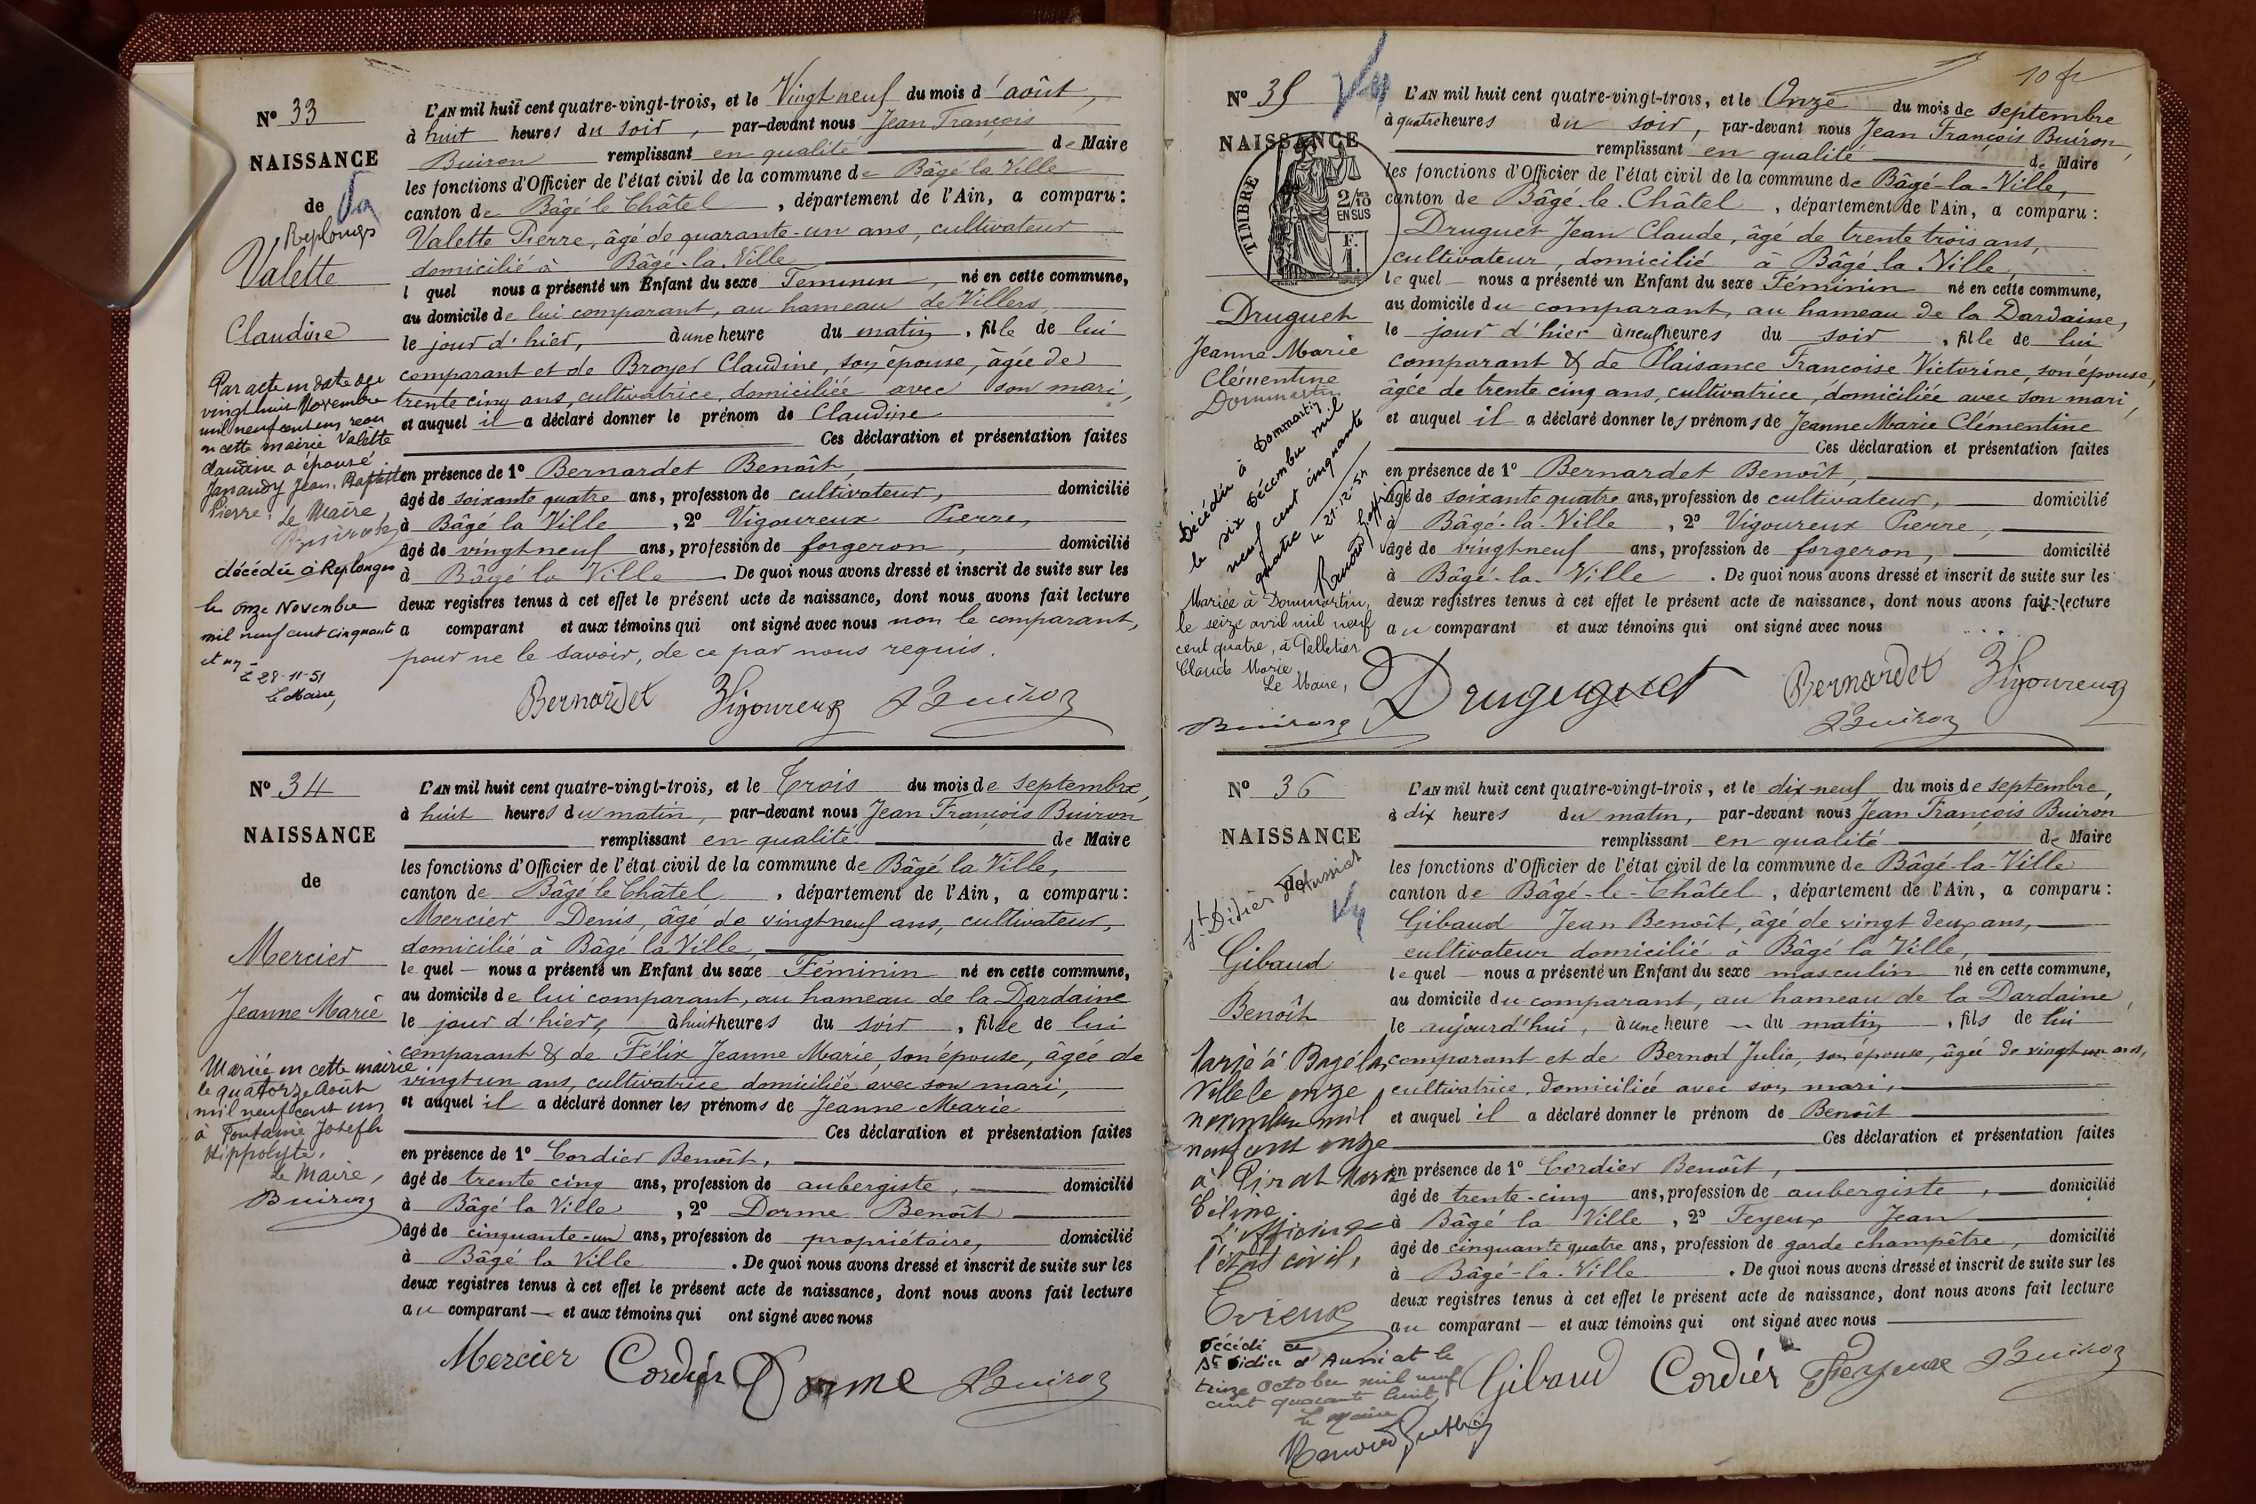 Nº 33
NAISSANCE
de
Replonges
Valette
Claudine
L'AN mil huit cent quatre-vingt-trois, et le Vingt neuf du mois d'août,
à huit heures du soir, par-devant nous Jean François
Buiron remplissant en qualité de Maire
les fonctions d'Officier de l'état civil de la commune de Bâgé la Ville
canton de Bâgé le Châtel, département de l'Ain, a comparu :
Valette Pierre, âgé de quarante-un ans, cultivateur
domicilié à Bâgé-la-Ville
l quel nous a présenté un Enfant du sexe Féminin, né en cette commune,
au domicile de lui comparant, au hameau de Villers,
le jour d'hier, à une heure du matin, fille de lui
comparant et de Broyer Claudine, son épouse, âgée de
trente cinq ans, cultivatrice, domiciliée avec son mari,
et auquel il a déclaré donner le prénom de Claudine
Ces déclaration et présentation faites
en présence de 1º Bernardet Benoît,
âgé de soixante quatre ans, profession de cultivateur, domicilié
à Bâgé la Ville, 2º Vigoureux Pierre,
âgé de vingt neuf ans, profession de forgeron, domicilié
à Bâgé la Ville. De quoi nous avons dressé et inscrit de suite sur les
deux registres tenus à cet effet le présent acte de naissance, dont nous avons fait lecture
a comparant et aux témoins qui ont signé avec nous non le comparant,
pour ne le savoir, de ce par nous requis.
Bernardet Vigoureux Buiron
Par acte en date du
vingt huit Novembre
mil neuf cent un reçu
en cette mairie Valette
Claudine a épousé
Janaudy Jean-Baptiste
Pierre. Le Maire,
Buiron
décédée à Replonges
le onze Novembre
mil neuf cent cinquante
et un
le 28-11-51
Le Maire,
Nº 34
NAISSANCE
de
Mercier
Jeanne Marie
L'AN mil huit cent quatre-vingt-trois, et le Trois du mois de septembre,
à huit heures du matin, par-devant nous Jean François Buiron
remplissant en qualité de Maire
les fonctions d'Officier de l'état civil de la commune de Bâgé la Ville,
canton de Bâgé le Châtel, département de l'Ain, a comparu :
Mercier Denis, âgé de vingt neuf ans, cultivateur,
domicilié à Bâgé la Ville,
le quel nous a présenté un Enfant du sexe Féminin né en cette commune,
au domicile de lui comparant, au hameau de la Dardaine
le jour d'hier, à huit heures du soir, fille de lui
comparant & de Félix Jeanne Marie, son épouse, âgée de
vingt un ans, cultivatrice domiciliée avec son mari,
et auquel il a déclaré donner les prénoms de Jeanne Marie
Ces déclaration et présentation faites
en présence de 1º Cordier Benoît,
âgé de trente cinq ans, profession de aubergiste, domicilié
à Bâgé la Ville, 2º Dorme Benoît
âgé de cinquante-un ans, profession de propriétaire, domicilié
à Bâgé la Ville. De quoi nous avons dressé et inscrit de suite sur les
deux registres tenus à cet effet le présent acte de naissance, dont nous avons fait lecture
au comparant et aux témoins qui ont signé avec nous
Mercier Cordier Dorme Buiron
Mariée en cette mairie
le quatorze Août
mil neuf cent un
à Fontaine Joseph
Hippolyte.
Le Maire,
Buiron
10 fr
Nº 35
NAISSANCE
TIMBRE
2/10
EN SUS
F.
1.
Druguet
Jeanne Marie
Clémentine
Dommartin
L'AN mil huit cent quatre-vingt-trois, et le Onze du mois de septembre
à quatre heures du soir, par-devant nous Jean François Buiron,
remplissant en qualité de Maire
les fonctions d'Officier de l'état civil de la commune de Bâgé-la-Ville,
canton de Bâgé-le-Châtel, département de l'Ain, a comparu :
Druguet Jean Claude, âgé de trente trois ans,
cultivateur, domicilié à Bâgé la Ville,
le quel nous a présenté un Enfant du sexe Féminin né en cette commune,
au domicile du comparant, au hameau de la Dardaine,
le jour d'hier à neuf heures du soir, fille de lui
comparant & de Plaisance Françoise Victorine, son épouse,
âgée de trente cinq ans, cultivatrice, domiciliée avec son mari,
et auquel il a déclaré donner les prénoms de Jeanne Marie Clémentine
Ces déclaration et présentation faites
en présence de 1º Bernardet Benoît,
âgé de soixante quatre ans, profession de cultivateur, domicilié
à Bâgé-la-Ville, 2º Vigoureux Pierre,
âgé de vingt neuf ans, profession de forgeron, domicilié
à Bâgé-la-Ville. De quoi nous avons dressé et inscrit de suite sur les
deux registres tenus à cet effet le présent acte de naissance, dont nous avons fait lecture
au comparant et aux témoins qui ont signé avec nous
Bernardet Vigoureux
Buiron
Décédée à Dommartin
le six Décembre mil
neuf cent cinquante
quatre
le 21-12-54
Mariée à Dommartin,
le seize avril mil neuf
cent quatre, à Pelletier
Claude Marie
Le Maire,
Buiron
Nº 36
NAISSANCE
de
St Didier d'Aussiat
Gibaud
Benoît
L'AN mil huit cent quatre-vingt-trois, et le dix-neuf du mois de septembre,
à dix heures du matin, par-devant nous Jean François Buiron
remplissant en qualité de Maire
les fonctions d'Officier de l'état civil de la commune de Bâgé-la-Ville
canton de Bâgé-le-Châtel, département de l'Ain, a comparu :
Gibaud Jean Benoît, âgé de vingt deux ans,
cultivateur domicilié à Bâgé la Ville,
le quel nous a présenté un Enfant du sexe masculin né en cette commune,
au domicile du comparant, au hameau de la Dardaine,
le aujourd'hui, à une heure du matin, fils de lui
comparant et de Bernard Julie, son épouse, âgée de vingt un ans,
cultivatrice, domiciliée avec son mari,
et auquel il a déclaré donner le prénom de Benoît
Ces déclaration et présentation faites
en présence de 1º Cordier Benoît,
âgé de trente-cinq ans, profession de aubergiste, domicilié
à Bâgé la Ville, 2º Feyeux Jean
âgé de cinquante quatre ans, profession de garde champêtre, domicilié
à Bâgé-la-Ville. De quoi nous avons dressé et inscrit de suite sur les
deux registres tenus à cet effet le présent acte de naissance, dont nous avons fait lecture
au comparant et aux témoins qui ont signé avec nous
Gibaud Cordier Feyeux Buiron
Marié à Bagé la
Ville le onze
novembre mil
neuf cent onze
à
Céline.
L'officier de
l'état civil,
Décédé à
St Didier d'Aussiat le
treize octobre mil neuf
cent quarante huit
Le Maire